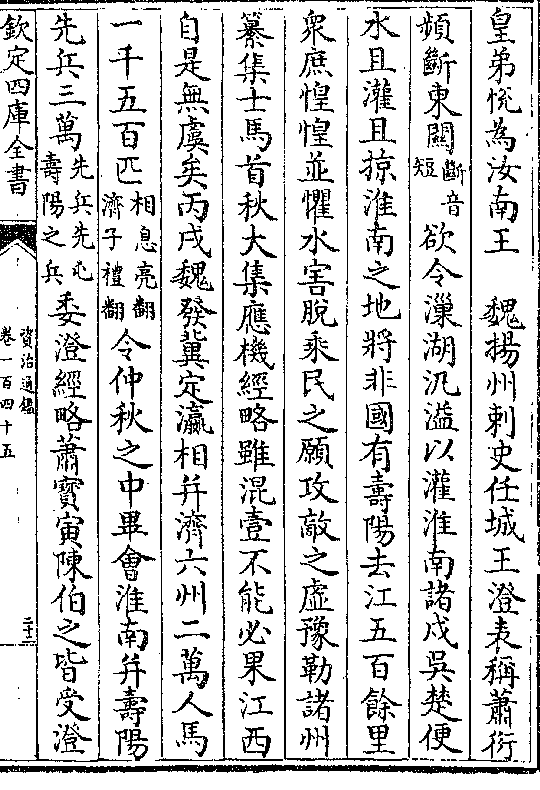 皇弟恱為汝南王　魏揚州刺史任城王澄表稱蕭衍
頻斷東關斷音短欲令漅湖汎溢以灌淮南諸戍吳楚便
水且灌且掠淮南之地將非國有壽陽去江五百餘里
衆庶惶惶並懼水害脫乘民之願攻敵之虛豫勒諸州
纂集士馬首秋大集應機經略雖混壹不能必果江西
自是無虞矣丙戌魏發冀定瀛相并濟六州二萬人馬
一千五百匹相息亮翻濟子禮翻令仲秋之中畢會淮南并壽陽
先兵三萬先兵先屯壽陽之兵委澄經略蕭寳寅陳伯之皆受澄
欽定四庫全書
資治通鑑
卷一百四十五
二十二